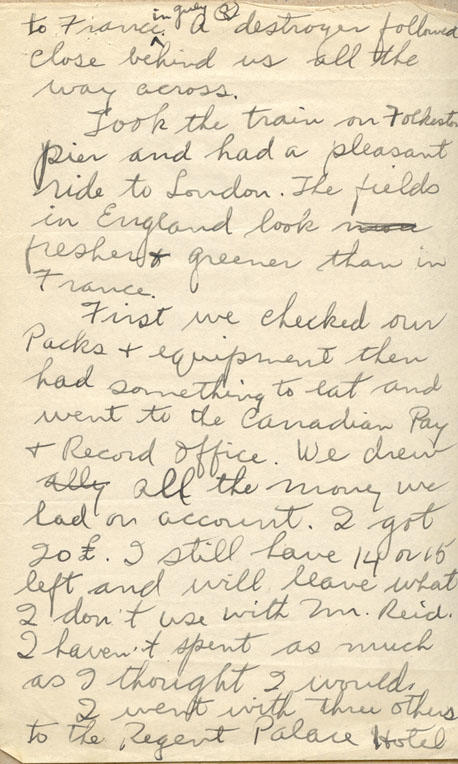 to France in July. A destroyer followed
close behind us all the
way across.
Took the train on Folkeston
pier and had a pleasant
ride to London. The fields
in England look
fresher & greener than in
France.
First we checked our
Packs & equipment then
had something to eat and
went to the Canadian Pay
& Record Office. We drew
ally all the money we
had on account. I got
20£. I still have 14 or 15
left and will leave what
I don't use with Mr. Reid.
I haven't spent as much
as I thought I would.
I went with three others
to the Regent Palace Hotel